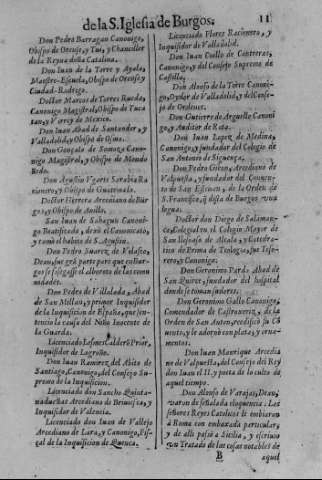 de la S. Iglesia de Burgos. 11
Don Pedro Barragan Canonigo,
Obispo de Orense, y Tui, y Chanciller
de la Reyna doña Catalina.
Don Iuan de la Torre y Ayala,
Maestre-Escuela, Obispo de Orense y
Ciudad-Rodrigo.
Doctor Marcos de Torres Rueda,
Canonigo Magistral, Obispo de Yuca
tan, y Virrey de Mexico.
Don Iuan Abad de Santander, y
Valladolid, y Obispo de Osma.
Don Gonçalo de Somoza Cano-
nigo Magistral, y Obispo de Mondo
ñedo.
Don Agustin Vgarte Sarabia Ra
cionero, y Obispo de Guatemala.
Doctor Herrera Arcediano de Bur
gos, y Obispo de
San Iuan de Sahagun Canoni-
go Beatificado, dexò el Canonicato,
y tomò el habito de S. Agustin.
Don Pedro Suarez de Velasco,
Dean, fue grã parte para que en Bur-
gos se sossegasse el alboroto de las comu
nidades.
Don Pedro de Villalada, Abad
de San Millan, y primer Inquisidor
de la Inquisicion de España, que sen-
tenciò la causa del Niño Inocente de
la Guarda.
Licenciado Calderõ Prior,
Inquisidor de Logroño.
Don Iuan Ramirez, del Abito de
Santiago, Canonigo, del Consejo Su-
premo de la Inquisicion.
Licenciado don Sancho Quinta-
nadueñas Arcediano de Briuiesca, y
Inquisidor de Valencia.
Licenciado don Iuan de Vallejo
Arcediano de Lara, y Canonigo, Fis-
cal de la Inquisicion de Cuenca.
Licenciado Flores Racionero, y
Inquisidor de Valladolid.
Don Iuan Coello de Contreras,
Canonigo, y del Consejo Supremo de
Castilla.
Don Alonso de la Torre Canoni-
go, Oydor de Valladolid, y del Conse-
jo de Ordenes.
Don Gutierre de Arguello Canoni
go, y Auditor de Rota.
Don Iuan Lopez de Medina,
Canonigo, y fundador del Colegio de
San Antonio de Siguença.
Don Pedro Giron, Arcediano de
Valpuesta, y fundador del Conuen-
to de San Esteuan, de la Orden de
S. Francisco, q̃ dista de Burgos vna
legua.
Doctor don Diego de Salaman-
ca, Colegial en el Colegio Mayor de
San Ildefonso de Alcalà, y Catedra-
tico de Prima de Teologia, fue Teso-
rero, y Canonigo.
Don Geronimo Pardo Abad de
San Quirce, fundador del hospital
donde se toman sudores.
Don Geronimo Gallo Canonigo,
Comendador de Castronuez, de la
Orden de San Anton, reedificò su Cõ
uento, y le adornò con plata, y orna-
mentos.
Don Iuan Manrique Arcedia
no de Valpuesta, del Consejo del Rey
don Iuan el II. y poeta de lo culto de
aquel tiempo.
Don Alonso de Varajas, Dean,
varon de señalada eloquencia. Los
señores Reyes Catolicos le embiaron
à Roma con embaxada particular,
y de alli passò à Sicilia, y escriuio
vn Tratado de las cosas notables de
B aquel